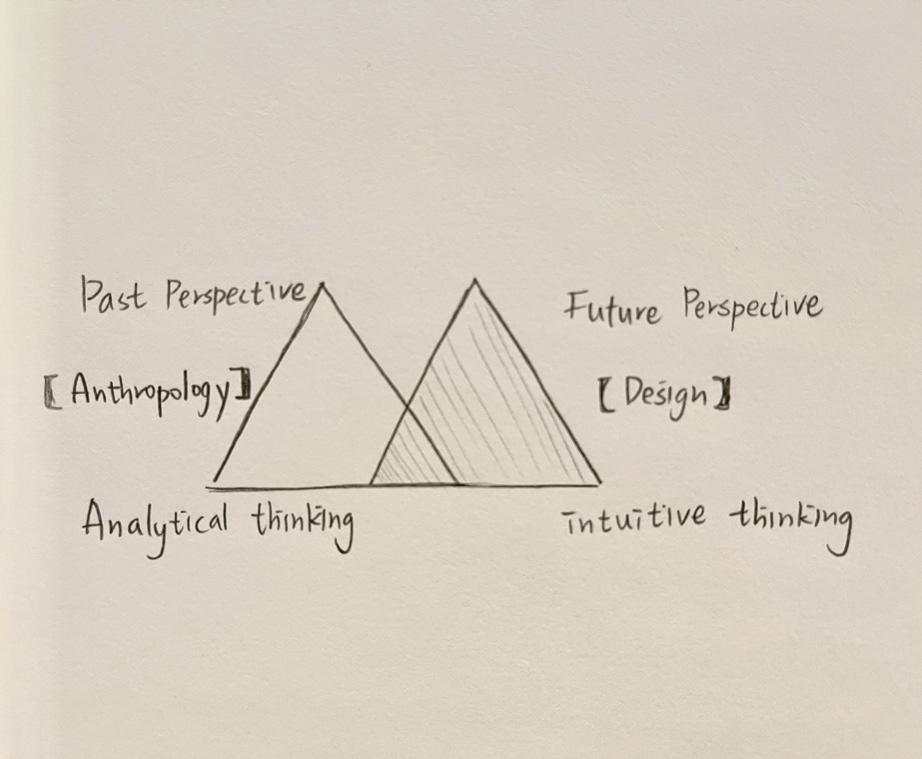 Past Perspective
Future Perspective
[Anthropology]
[Design]
Analytical thinking
intuitive thinking